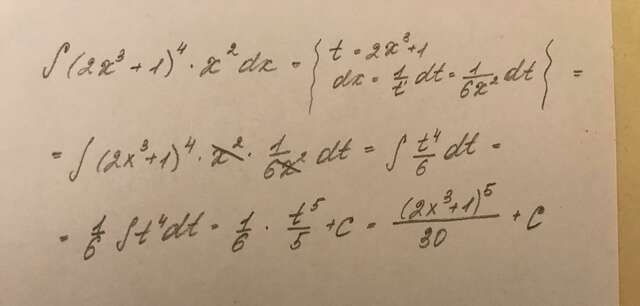 ∫(2x³+1)⁴ · x² dx = { t = 2x³+1
dx = 1/t' dt = 1/6x² dt } =
= ∫(2x³+1)⁴ · x² · 1/6x² dt = ∫ t⁴/6 dt =
= 1/6 ∫t⁴dt = 1/6 · t⁵/5 + C = (2x³+1)⁵/30 + C